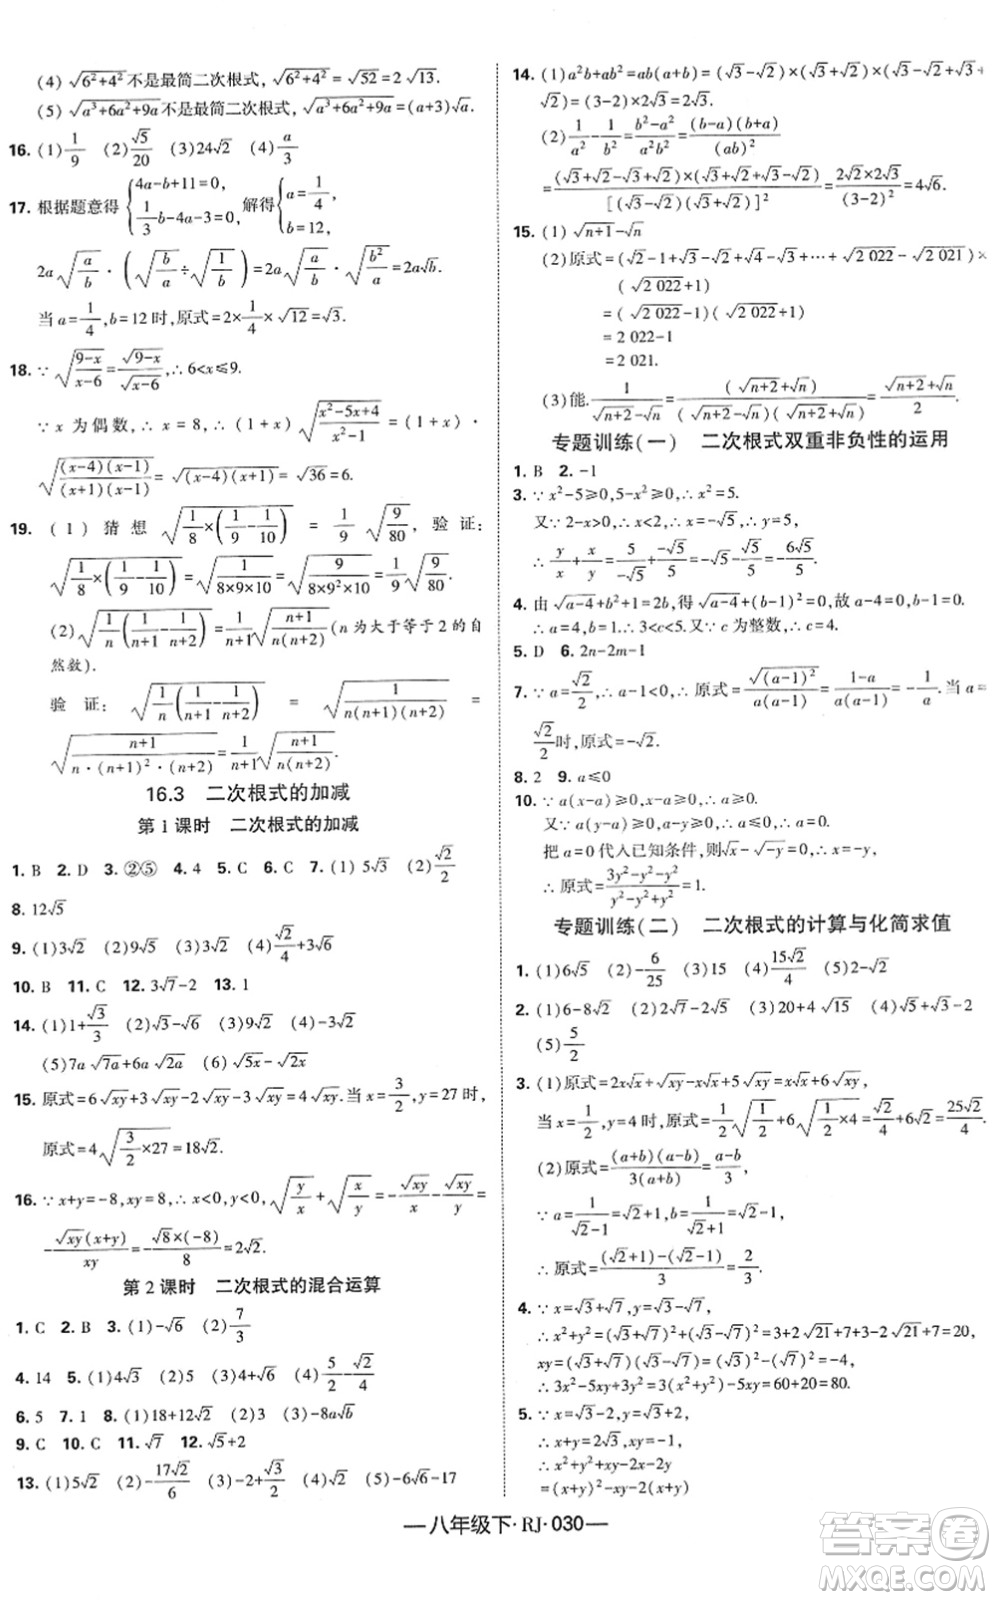 (4) √(6²+4²)不是最简二次根式, √(6²+4²)=√52=2√13.
(5) √(a³+6a²+9a)不是最简二次根式, √(a³+6a²+9a)=(a+3)√a.
16. (1) 1/9 (2) √5/20 (3)24√2 (4) a/3
17. 根据题意得{4a-b+11=0, 1/3 b-4a-3=0, 解得{a=1/4, b=12,
2a√(a/b)·(√(b/a)÷√(1/b))=2a√(a/b)·√(b²/a)=2a√b.
当a=1/4,b=12时,原式=2×1/4×√12=√3.
18. ∵√((9-x)/(x-6))=√(9-x)/√(x-6),∴6<x≤9.
∵x为偶数,∴x=8,∴(1+x)√((x²-5x+4)/(x²-1))=(1+x)·
√((x-4)(x-1)/((x+1)(x-1)))=√((x-4)(x+1))=√36=6.
19. (1)猜想√(1/8×(1/9-1/10))=1/9√(9/80),验证:
√(1/8×(1/9-1/10))=√(1/(8×9×10))=√(9/(8×9²×10))=1/9√(9/80).
(2)√(1/n(1/(n+1)-1/(n+2)))=1/(n+1)√((n+1)/(n(n+2)))(n为大于等于2的自
然数).
验证:√(1/n(1/(n+1)-1/(n+2)))=√(1/(n(n+1)(n+2)))=
√((n+1)/(n·(n+1)²·(n+2)))=1/(n+1)√((n+1)/(n(n+2))).
16.3 二次根式的加减
第1课时 二次根式的加减
1. B 2. D 3. ②⑤ 4. 4 5. C 6. C 7. (1) 5√3 (2)√2/2
8. 12√5
9. (1)3√2 (2)9√5 (3)9√2 (4)√2/4+3√6
10. B 11. C 12. 3√7-2 13. 1
14. (1)1+√3/3 (2)√3-√6 (3)9√2 (4)1-3√2
(5)7a√(7a)+6a√(2a) (6)√(5x)-√(2x)
15. 原式=6√(xy)+3√(xy)-2√(xy)-3√(xy)=4√(xy).当x=3/2,y=27时,
原式=4√(3/2×27)=18√2.
16. ∵x+y=-8,xy=8,∴x<0,y<0,√(y/x)+√(x/y)=-√(xy)/x-√(xy)/y=
-√(xy)(x+y)/xy=-√8×(-8)/8=2√2.
第2课时 二次根式的混合运算
1. C 2. B 3. (1)-√6 (2)7/3
4. 14 5. (1)4√3 (2)5 (3)4+√6 (4)5/2-√2/4
6. 5 7. 1 8. (1)18+12√2 (2)3 (3)-8a√b
9. C 10. C 11. √7 12. √5+2
13. (1)5√2 (2)-17√2/6 (3)-2+√3/2 (4)3√2 (5)-6√6-17
14. (1)a²b+ab²=ab(a+b)=(√3-√2)×(√3+√2)×(√3-√2+√3+
√2)=(3-2)×2√3=2√3.
(2)1/a²-1/b²=(b²-a²)/a²b²=(b-a)(b+a)/(ab)²
=(√3+√2-√3+√2)×(√3+√2+√3-√2)/[(√3-√2)(√3+√2)]²=2√2×2√3/(3-2)²=4√6.
15. (1)√(n+1)-√n
(2)原式=(√2-1+√3-√2+√4-√3+⋯+√2 022-√2 021)×
(√2 022+1)
=(√2 022-1)(√2 022+1)
=2 022-1
=2 021.
(3)能.1/(√(n+2)-√n)=(√(n+2)+√n)/((√(n+2)-√n)(√(n+2)+√n))=(√(n+2)+√n)/2.
专题训练(一) 二次根式双重非负性的运用
1. B 2. -1
3. ∵x²-5≥0,5-x²≥0,∴x²=5.
又∵2-x>0,∴x<2,∴x=-√5,∴y=5,
∴y/x+x/y=5/-√5+-√5/5=-√5-√5/5=-6√5/5.
4. 由√(a-4)+b²+1=2b,得√(a-4)+(b-1)²=0,故a-4=0,b-1=0.
∴a=4,b=1,∴3<c<5.又∵c为整数,∴c=4.
5. D 6. 2n-2m-1
7. ∵a=√2/2,∴a-1<0,∴原式=√((a-1)²)/(a(a-1))=(1-a)/(a(a-1))=-1/a.当a=
√2/2时,原式=-√2.
8. 2 9. a≤0
10. ∵a(x-a)≥0,x-a≥0,∴a≥0.
又∵a(y-a)≥0,a-y≥0,∴a≤0,∴a=0.
把a=0代入已知条件,所以√x-√(-y)=0,∴x=-y,
∴原式=(3y²-y²-y²)/(y²-y²+y²)=1.
专题训练(二) 二次根式的计算与化简求值
1. (1)6√5 (2)-6/25 (3)15 (4)15√2/4 (5)2-√2
2. (1)6-8√2 (2)2√7-√5 (3)20+4√15 (4)√5+√3-2
(5)5/2
3. (1)原式=2x√x+√(xy)-x√x+5√(xy)=x√x+6√(xy),
当x=1/2,y=4时,原式=1/2√(1/2)+6√(1/2×4)=√2/4+6√2=25√2/4.
(2)原式=(a+b)(a-b)/3(a+b)=(a-b)/3,
∵a=1/(√2-1)=√2+1,b=1/(√2+1)=√2-1,
∴原式=((√2+1)-(√2-1))/3=2/3.
4. ∵x=√3+√7,y=√3-√7,
∴x²+y²=(√3+√7)²+(√3-√7)²=3+2√21+7+3-2√21+7=20,
xy=(√3+√7)×(√3-√7)=-4,
∴3x²-5xy+3y²=3(x²+y²)-5xy=60+20=80.
5. ∵x=√3-2,y=√3+2,
∴x+y=2√3,xy=-1,
∴x²+y²+xy-2x-2y
=(x+y)²-2(x+y)-xy
八年级下·RJ·030
答案圈
MXQE.COM